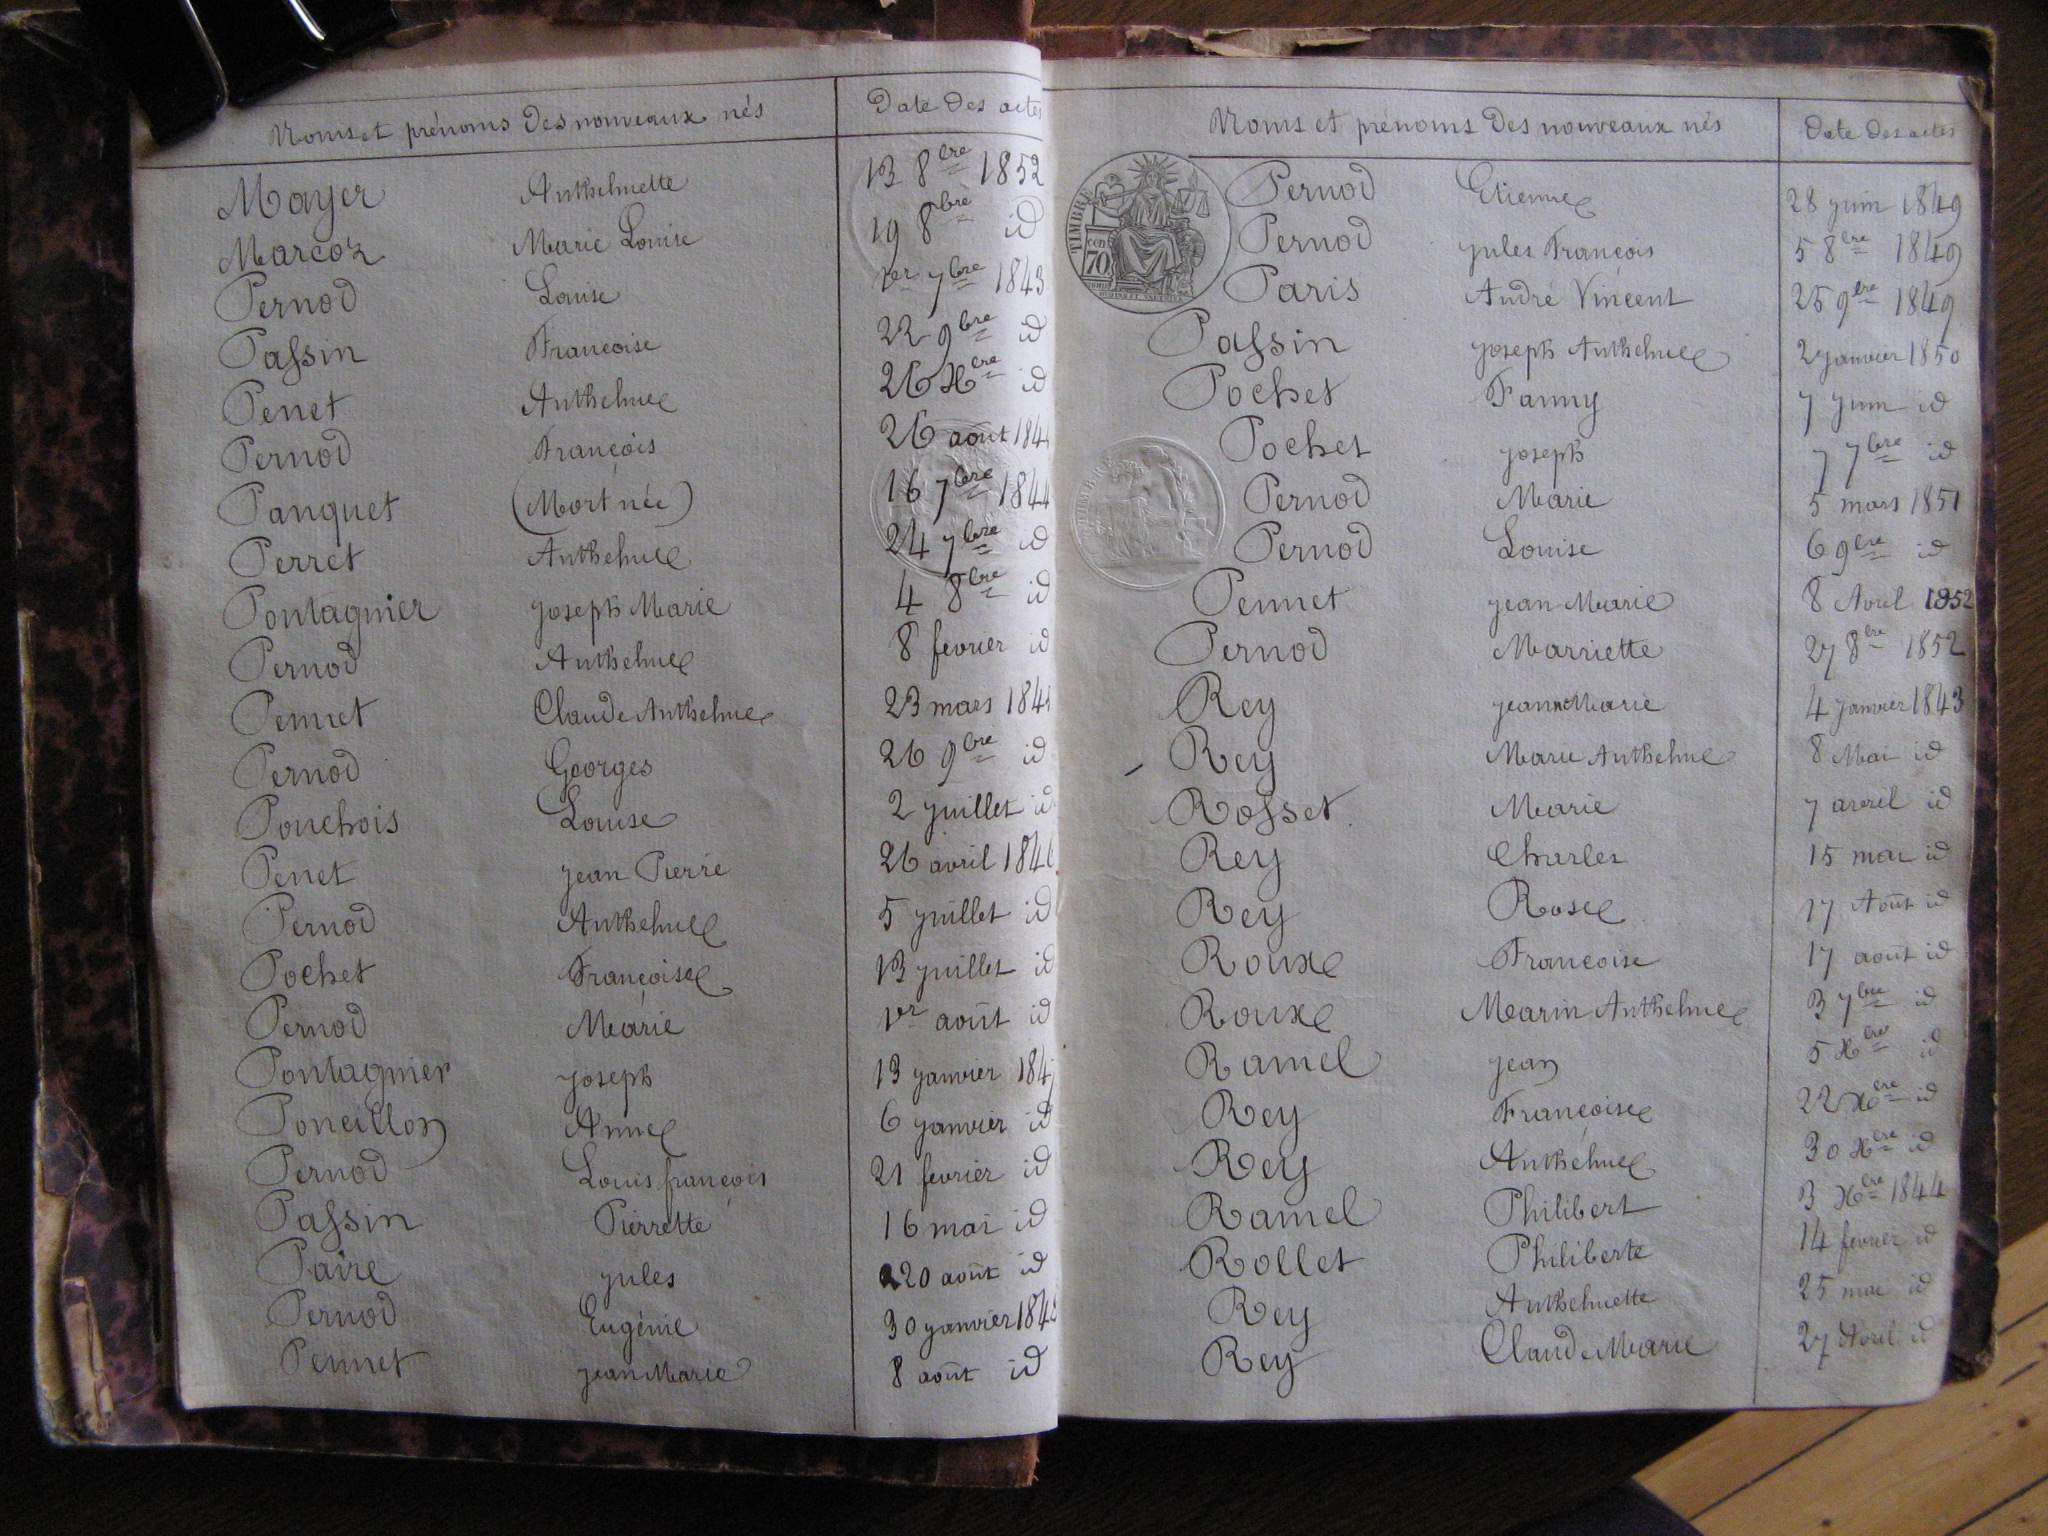 Noms et prénoms des nouveaux nés Date des actes
Mayer Anthelmette 13 8bre 1852
Marcoz Marie Louise 19 8bre id
Pernod Louise 1er 7bre 1843
Passin Françoise 22 9bre id
Penet Anthelme 26 Xbre id
Pernod François 26 août 184
Panquet (Mort née) 16 7bre 1844
Perret Anthelme 24 7bre id
Pontagnier Joseph Marie 4 8bre id
Pernod Anthelme 8 fevrier id
Pennet Claude Anthelme 23 mars 184
Pernod Georges 26 9bre id
Ponchois Louise 2 juillet id
Penet jean Pierre 26 avril 1846
Pernod Anthelme 5 juillet id
Pochet Françoise 13 juillet id
Pernod Marie 1er août id
Pontagnier Joseph 13 janvier 184
Poncillon Anne 6 janvier id
Pernod Louis françois 21 fevrier id
Passin Pierrette 16 mai id
Paire jules 20 août id
Pernod Eugénie 30 janvier 184
Pennet jean Marie 8 août id
Noms et prénoms des nouveaux nés Date des actes
TIMBRE
70
Pernod Etienne 28 juin 1849
Pernod jules François 5 8bre 1849
Paris André Vincent 25 9bre 1849
Passin joseph Anthelme 2 janvier 1850
Pochet Fanny 7 juin id
Pochet joseph 7 7bre id
Pernod Marie 5 mars 1851
Pernod Louise 6 9bre id
Pennet jean Marie 8 Avril 1852
Pernod Marriette 27 8bre 1852
Rey jeanne Marie 4 janvier 1843
Rey Marie Anthelme 8 Mai id
Rosset Marie 7 avril id
Rey Charles 15 mai id
Rey Rose 17 Août id
Roux Françoise 17 août id
Roux Marin Anthelme 3 7bre id
Ramel jean 5 Xbre id
Rey Françoise 22 Xbre id
Rey Anthelme 30 Xbre id
Ramel Philibert 3 Xbre 1844
Rollet Philiberte 14 fevrier id
Rey Anthelmette 25 mai id
Rey Claude Marie 27 Avril id